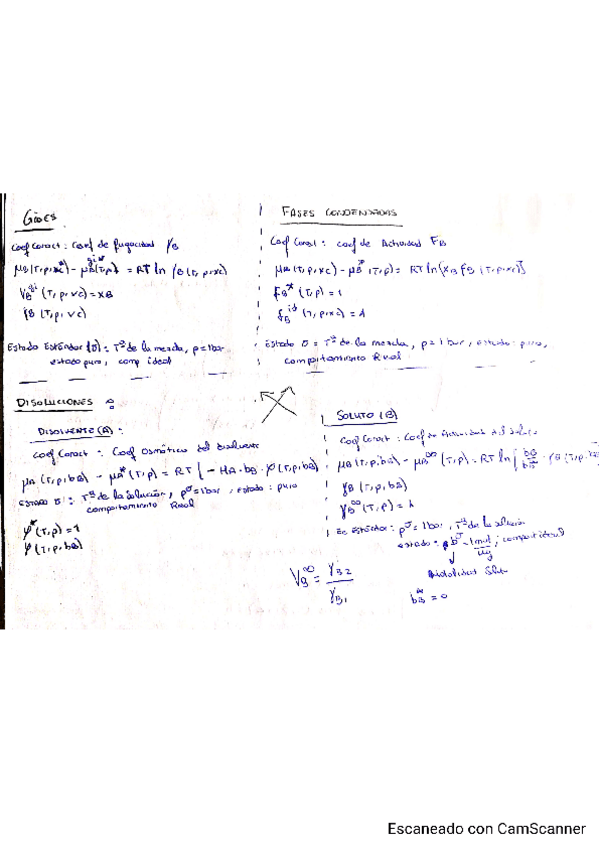 GASES
Coef Caract: Coef de fugacidad
= RT ln
Estado Estándar (θ): Tª de la mezcla, p=1bar
estado puro, comp ideal
FASES CONDENSADAS
Coef Caract: coef de Actividad FB
μB (T,p,xc) - μB* (T,p) = RT ln[xB fB (T,p,xc)]
fB* (T,p) = 1
fB id (T,p,xc) = 1
Estado θ = Tª de la mezcla, p=1bar, estado: puro,
comportamiento Real
DISOLUCIONES :
DISOLVENTE (A) :
Coef Caract : Coef Osmótico del disolvente
μA (T,p,bB) - μA* (T,p) = RT (-MA·bB·φ(T,p,bB)
Estado θ : Tª de la solución, pθ=1bar, estado: puro
comportamiento Real
φ* (T,p) = 1
φ (T,p,bB)
SOLUTO (B)
Coef Caract : Coef de Actividad del soluto
μB (T,p,bB) - μB∞ (T,p) = RT ln
γB (T,p,bB)
γB∞ (T,p) = 1
Es Estándar: pθ=1bar, Tª de la solución
estado: bθ=1mol/kg; comport ideal
γB∞ = γB2 / γB1
bB∞ = 0
Escaneado con CamScanner